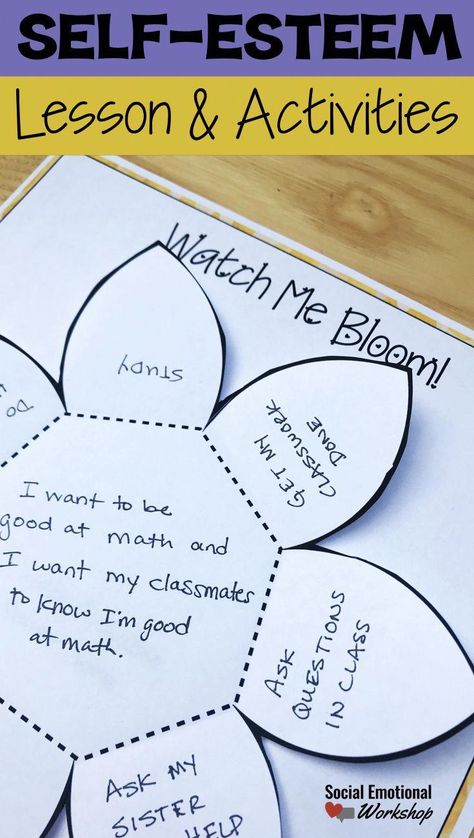 SELF-ESTEEM
Lesson & Activities
Watch Me Bloom!
STUDY
GET MY
CLASSWORK
DONE
DO
I want to be
good at math and
I want my classmates
to know I'm good
at math.
ASK
QUESTIONS
IN CLASS
ASK MY
SISTER
HELP
Social Emotional
Workshop